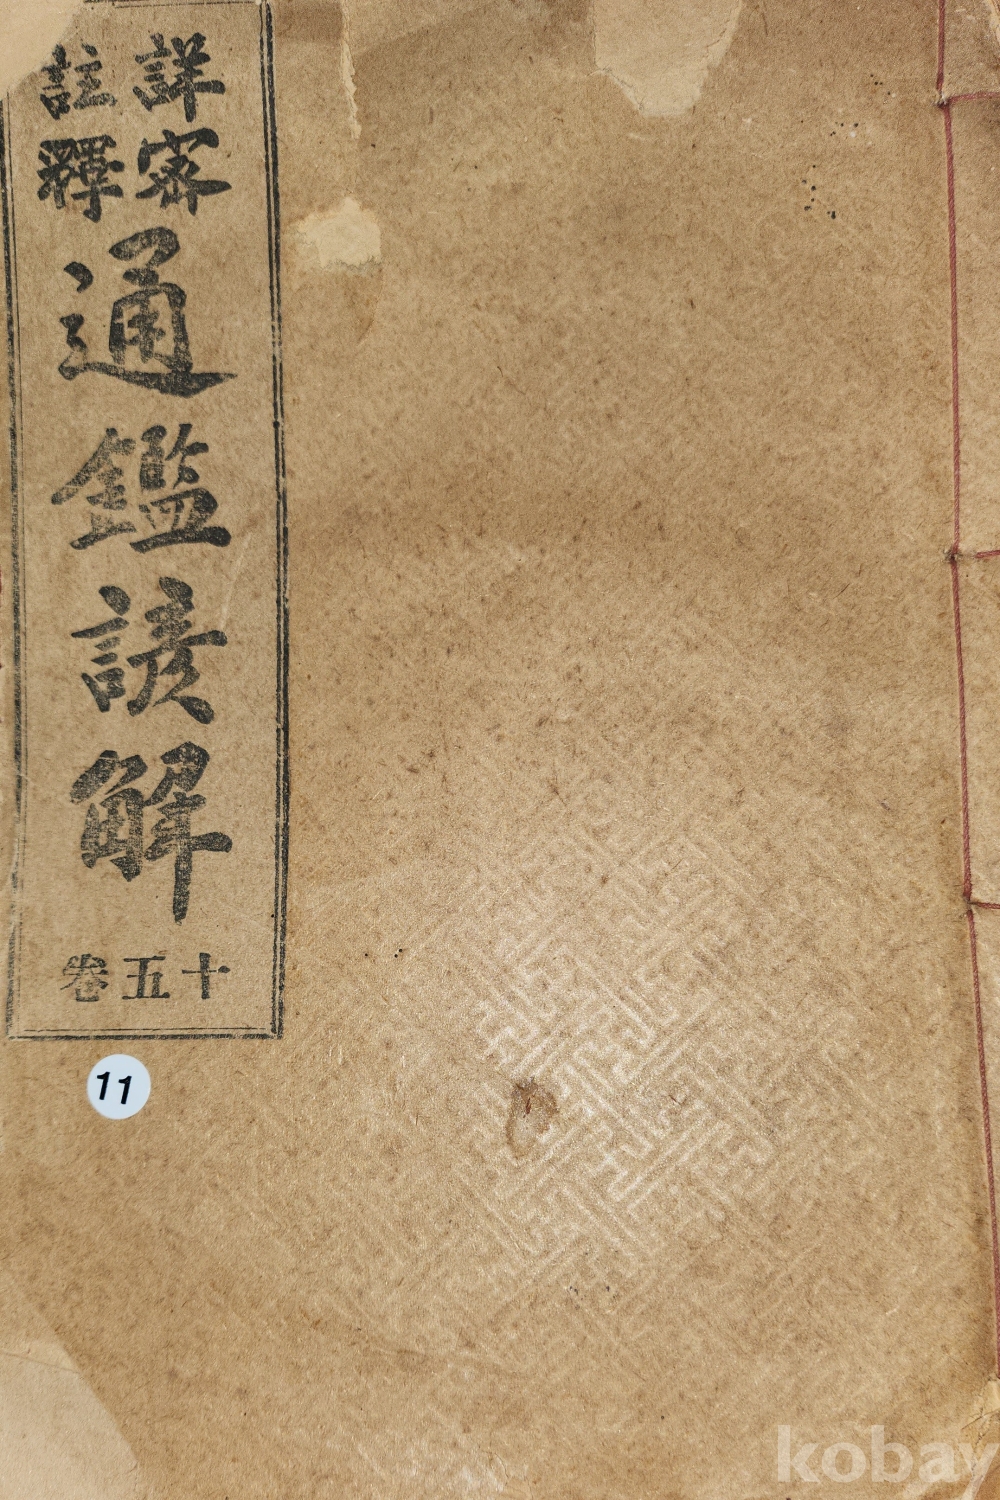 詳密
註釋
通鑑諺解
卷五十
11
kobay